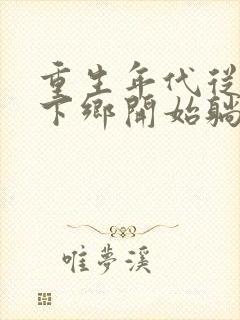 重生年代從
下鄉開始躺
唯夢溪